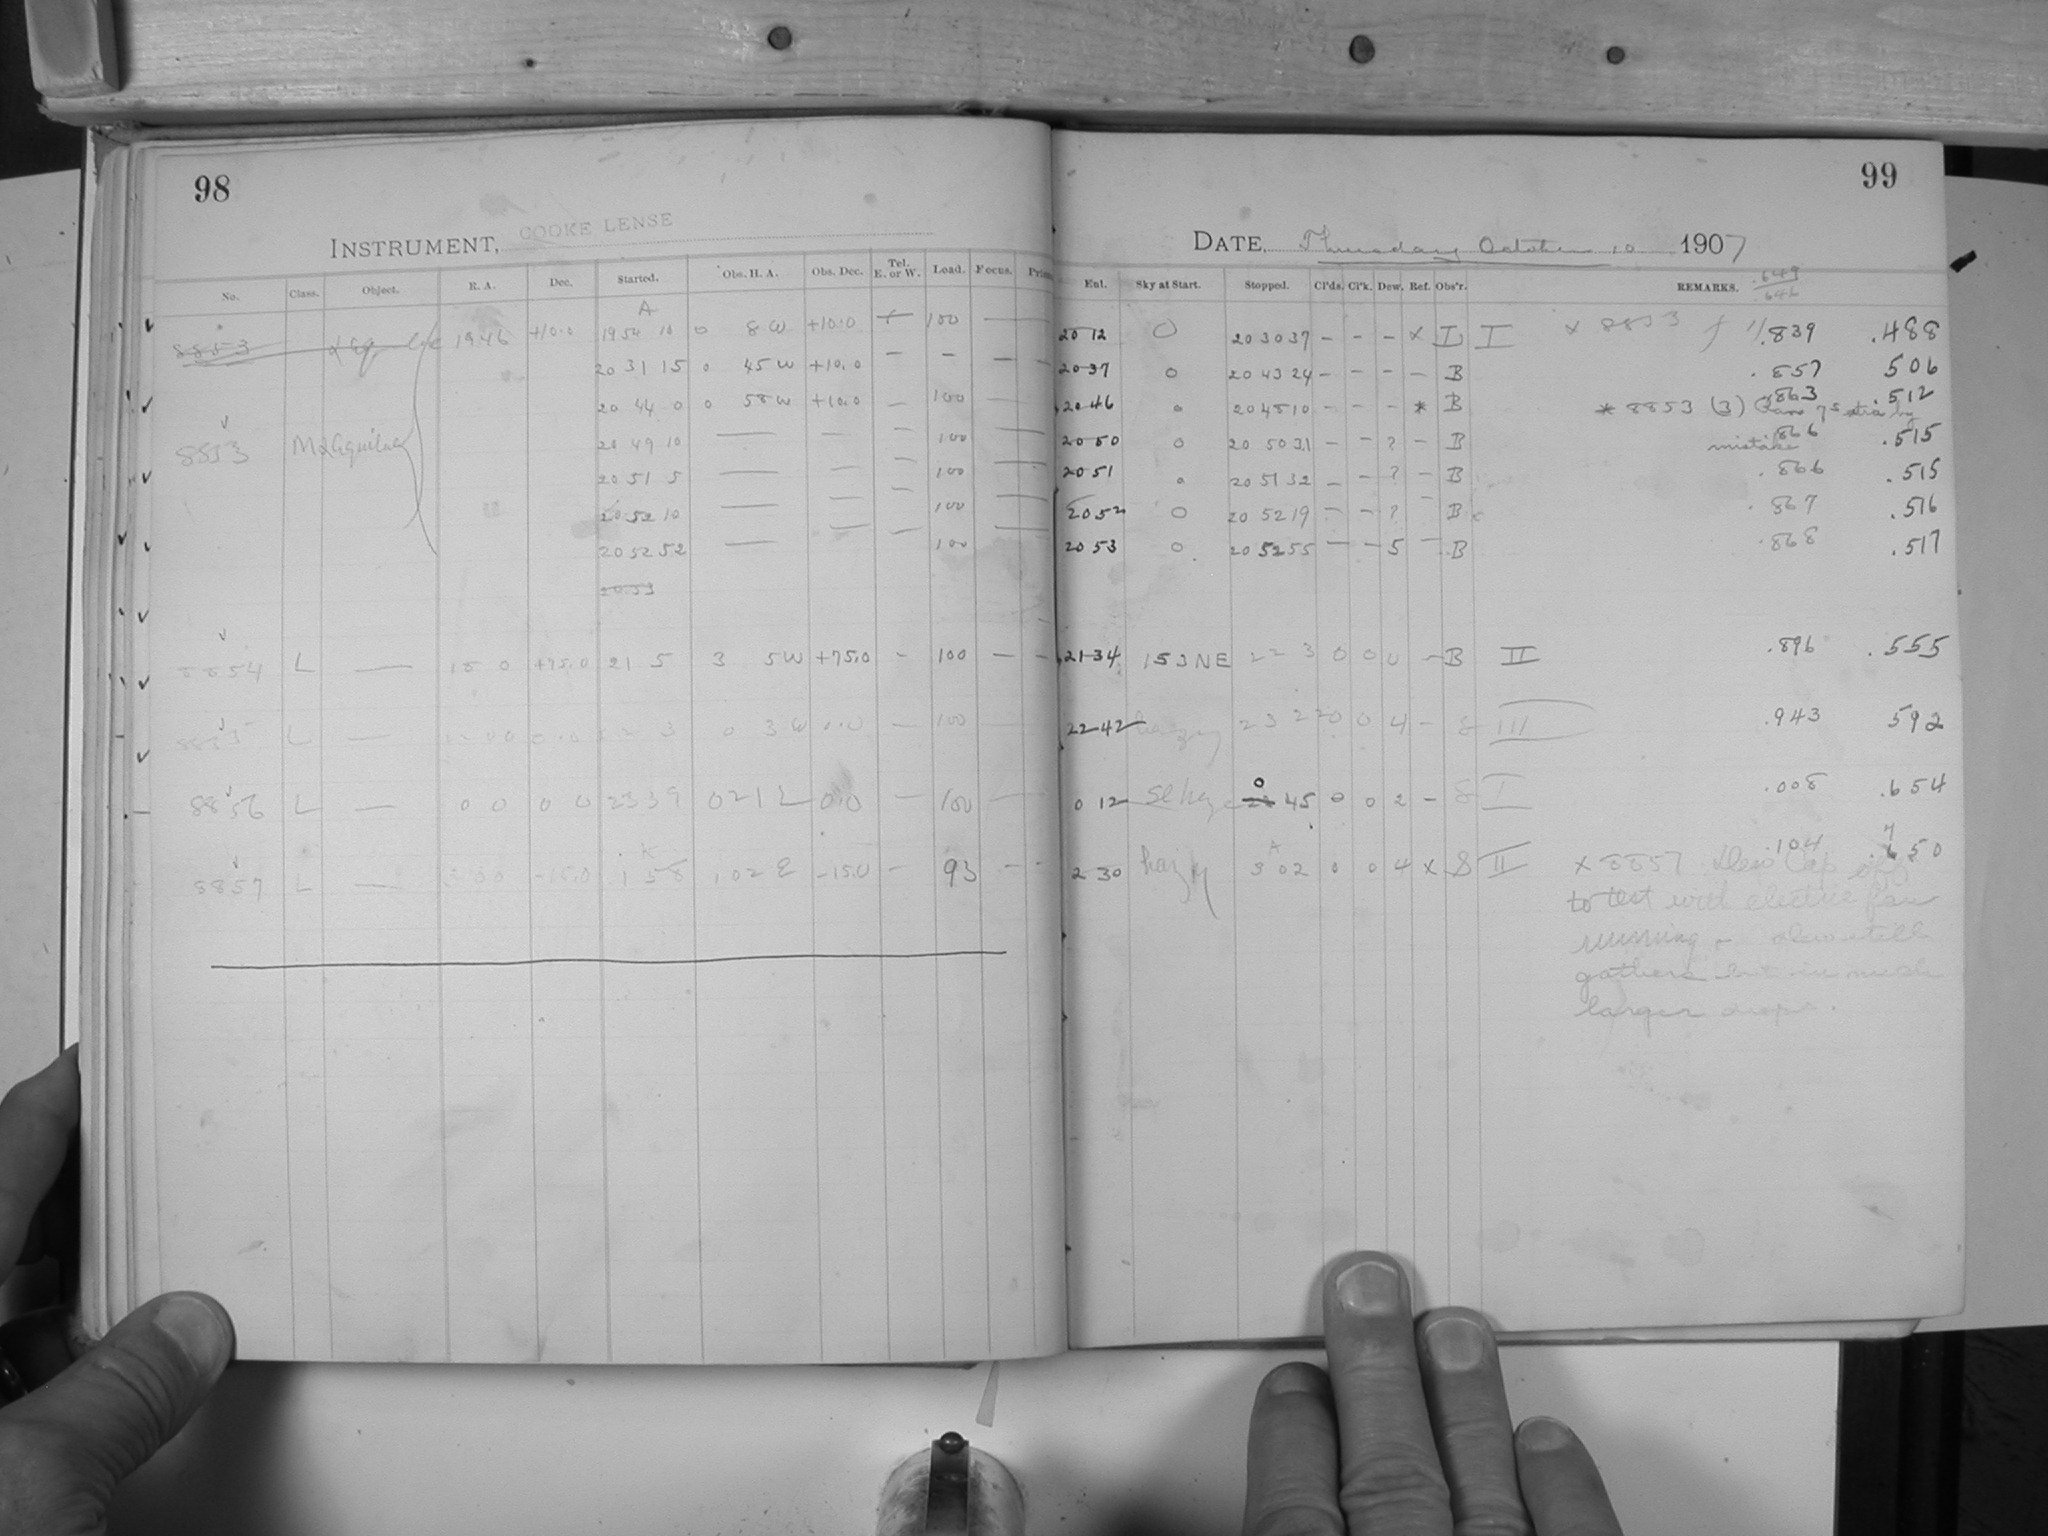 98
INSTRUMENT, COOKE LENSE
No. Class. Object. R. A. Dec. Started. Obs. H. A. Obs. Dec. Tel. E. or W. Load. Focus.
A
8853 19 46 +10.0 19 54 10 0 8 W +10.0 100
20 31 15 0 45 W +10.0 — —
20 44 0 0 58 W +10.0 — 100
8853 M 20 49 10 — — — 100
20 51 5 — — — 100
20 52 10 — — — 100
20 52 52 — — — 100
20 53
8854 L — 18 0 +75.0 21 5 3 5 W +75.0 — 100 — —
L — 0 3 W — 100
8856 L — 0 0 0 0 23 39 0.0 — 100
8857 L — -15.0 1 58 1 02 E -15.0 — 93 — —
99
DATE, Thursday October 10 1907
Ent. Sky at Start. Stopped. Cl'ds. Cl'k. Dew. Ref. Obs'r. REMARKS. .649
.646
20 12 0 20 30 37 — — — x L I x 8853 .839 .488
20 37 0 20 43 24 — — — — B .857 506
20 46 0 20 48 10 — — — * B .863 .512
* 8853 (3) Ran 7s extra by
mistake
20 50 0 20 50 31 — — ? — B .866 .515
20 51 0 20 51 32 — — ? — B .866 .515
20 52 0 20 52 19 — — ? — B .867 .516
20 53 0 20 52 55 — — 5 — B .868 .517
21 34 153NE 22 3 0 0 0 — B II .896 .555
22 42 hazy 23 22 0 0 4 — S III .943 592
0 12 0 45 0 0 2 — S I .008 .654
2 30 hazy 3 02 0 0 4 x S II .104
x 8857 Dew Cap off
to test with electric fan
running – dew still
gathers but in much
larger drops.